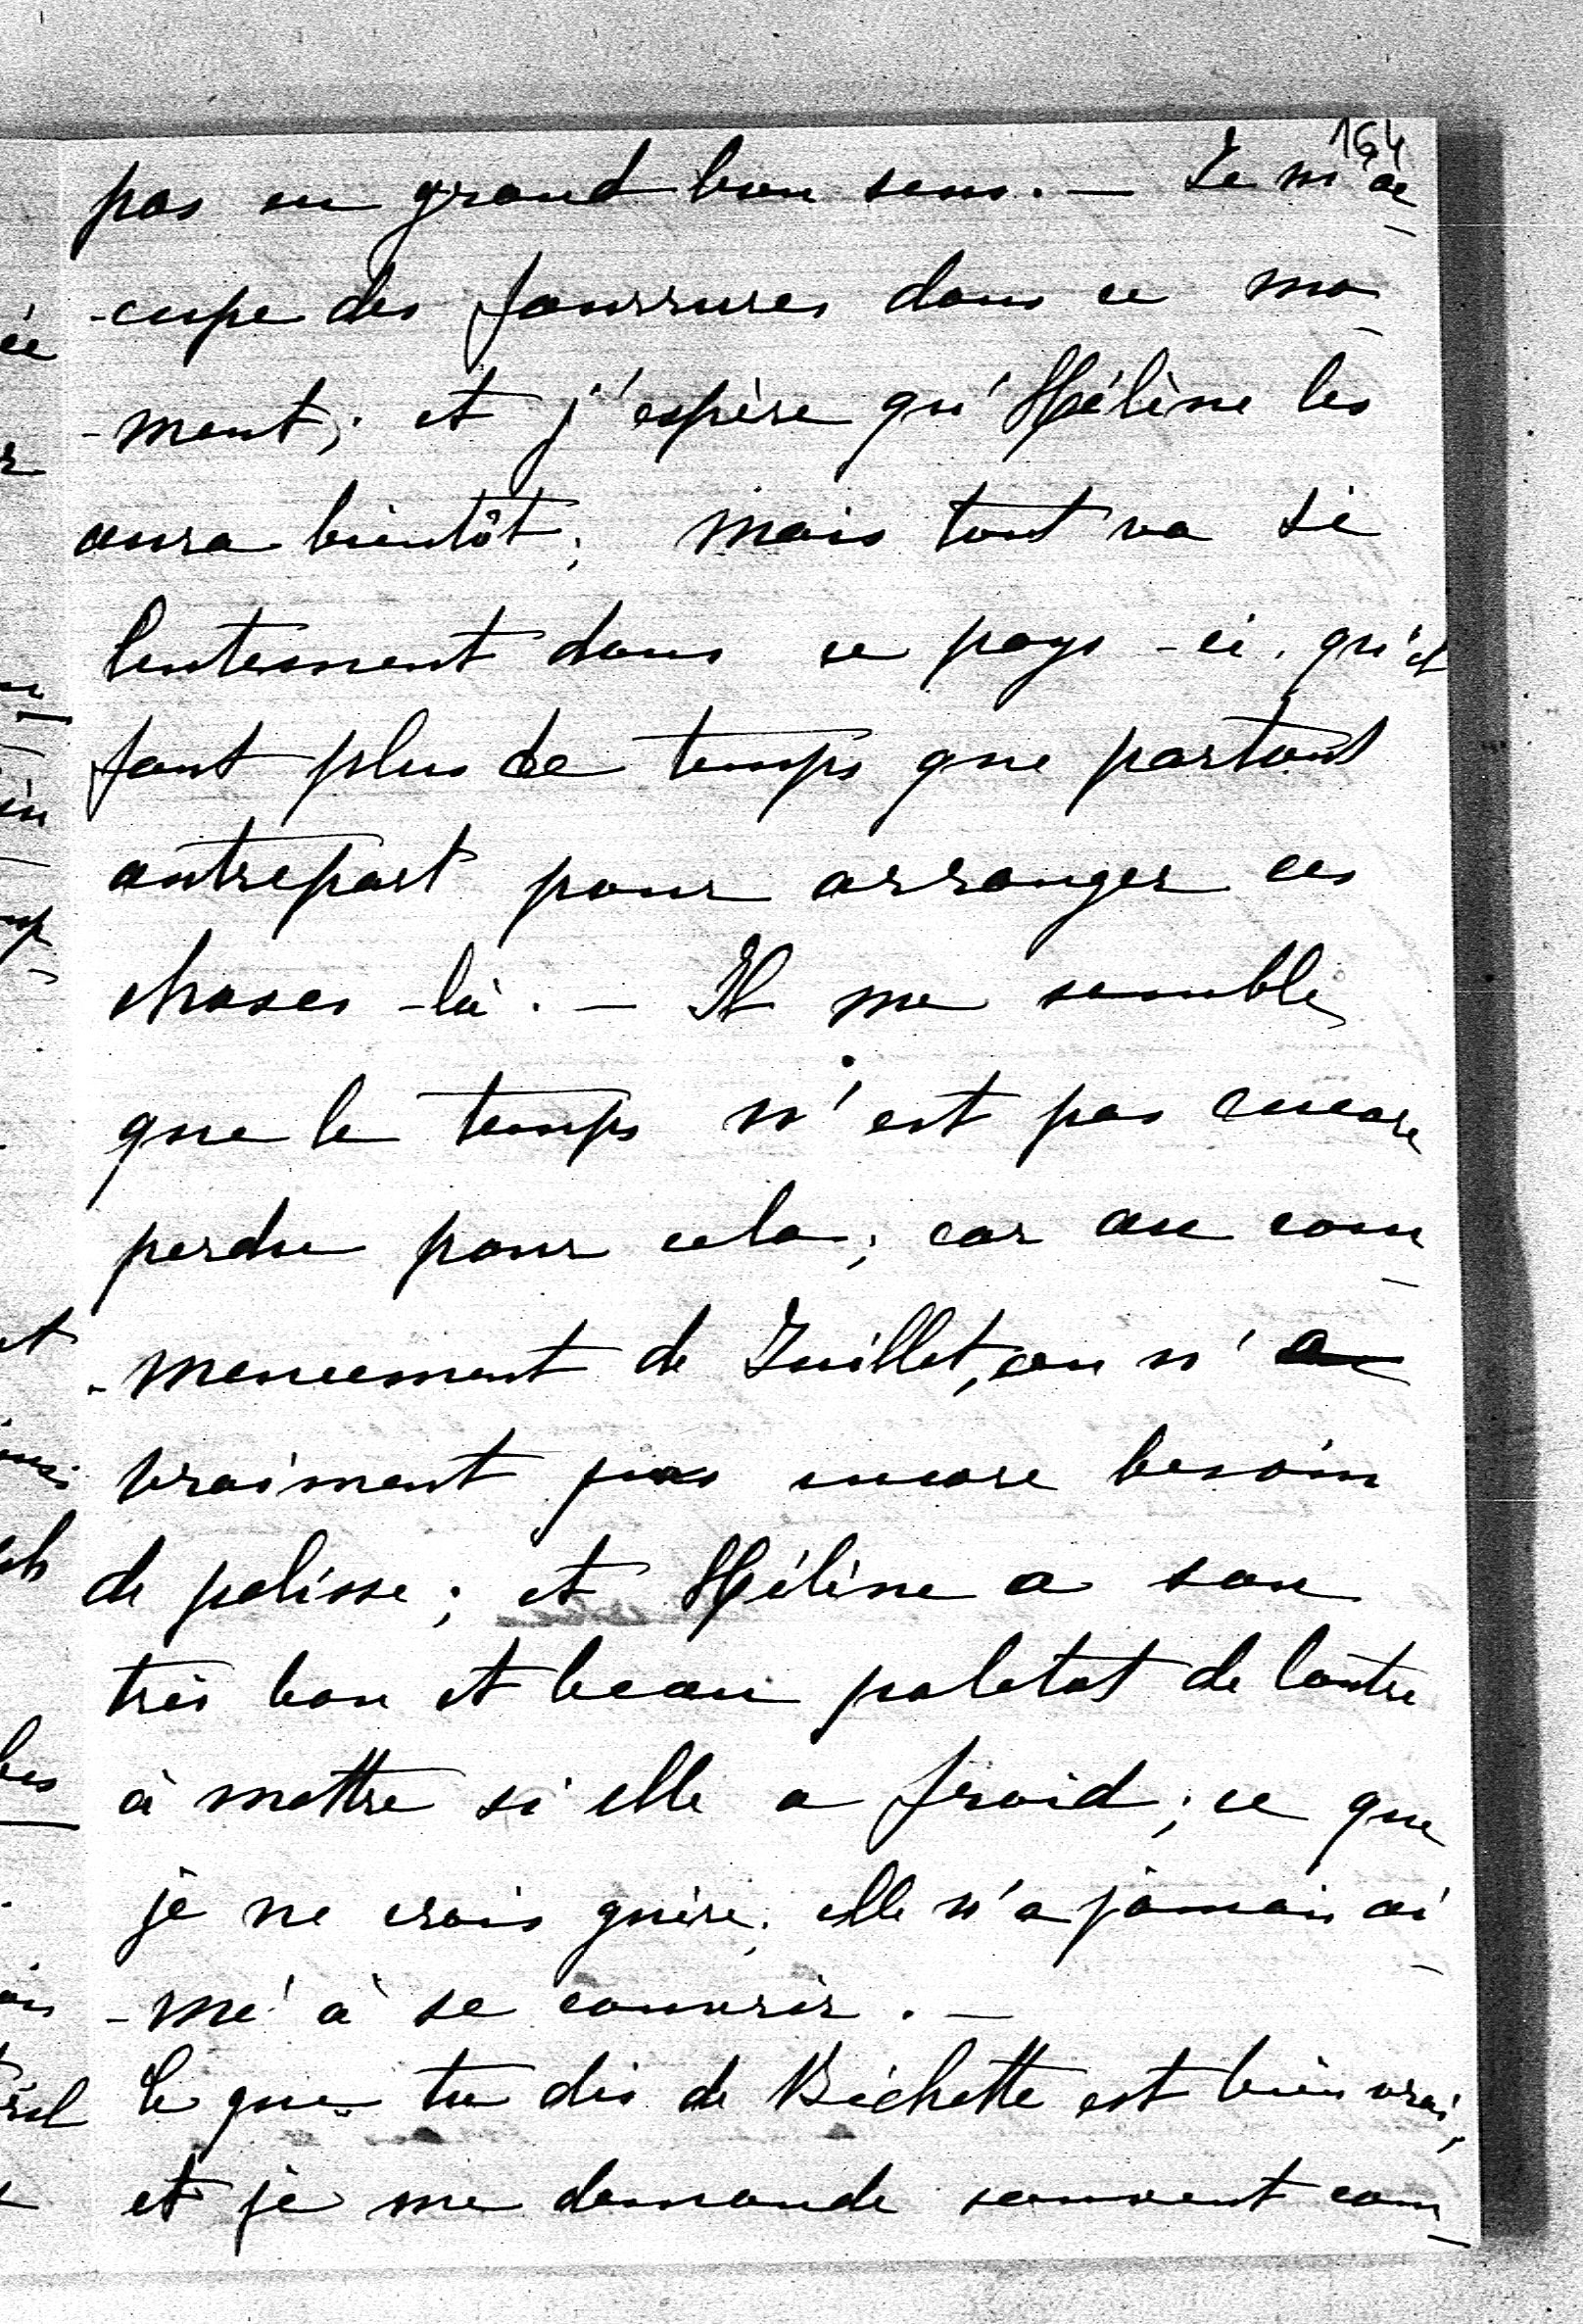 164
pas un grand bon sens. — Je m'oc-
-cupe des fourrures dans ce mo-
-ment; et j'espère qu'Hélène les
aura bientôt; mais tout va si
lentement dans ce pays-ci, qu'il
faut plus de temps que partout
autrepart pour arranger ces
choses-là. — Il me semble
que le temps n'est pas encore
perdu pour cela; car au com-
-mencement de Juillet, on n'a
vraiment pas encore besoin
de pelisse; et Hélène a son
très bon et beau paletot de loutre
à mettre si elle a froid; ce que
je ne crois guère; elle n'a jamais ai-
-mé à se couvrir. —
Ce que tu dis de Bichette est bien vrai,
et je me demande souvent com-